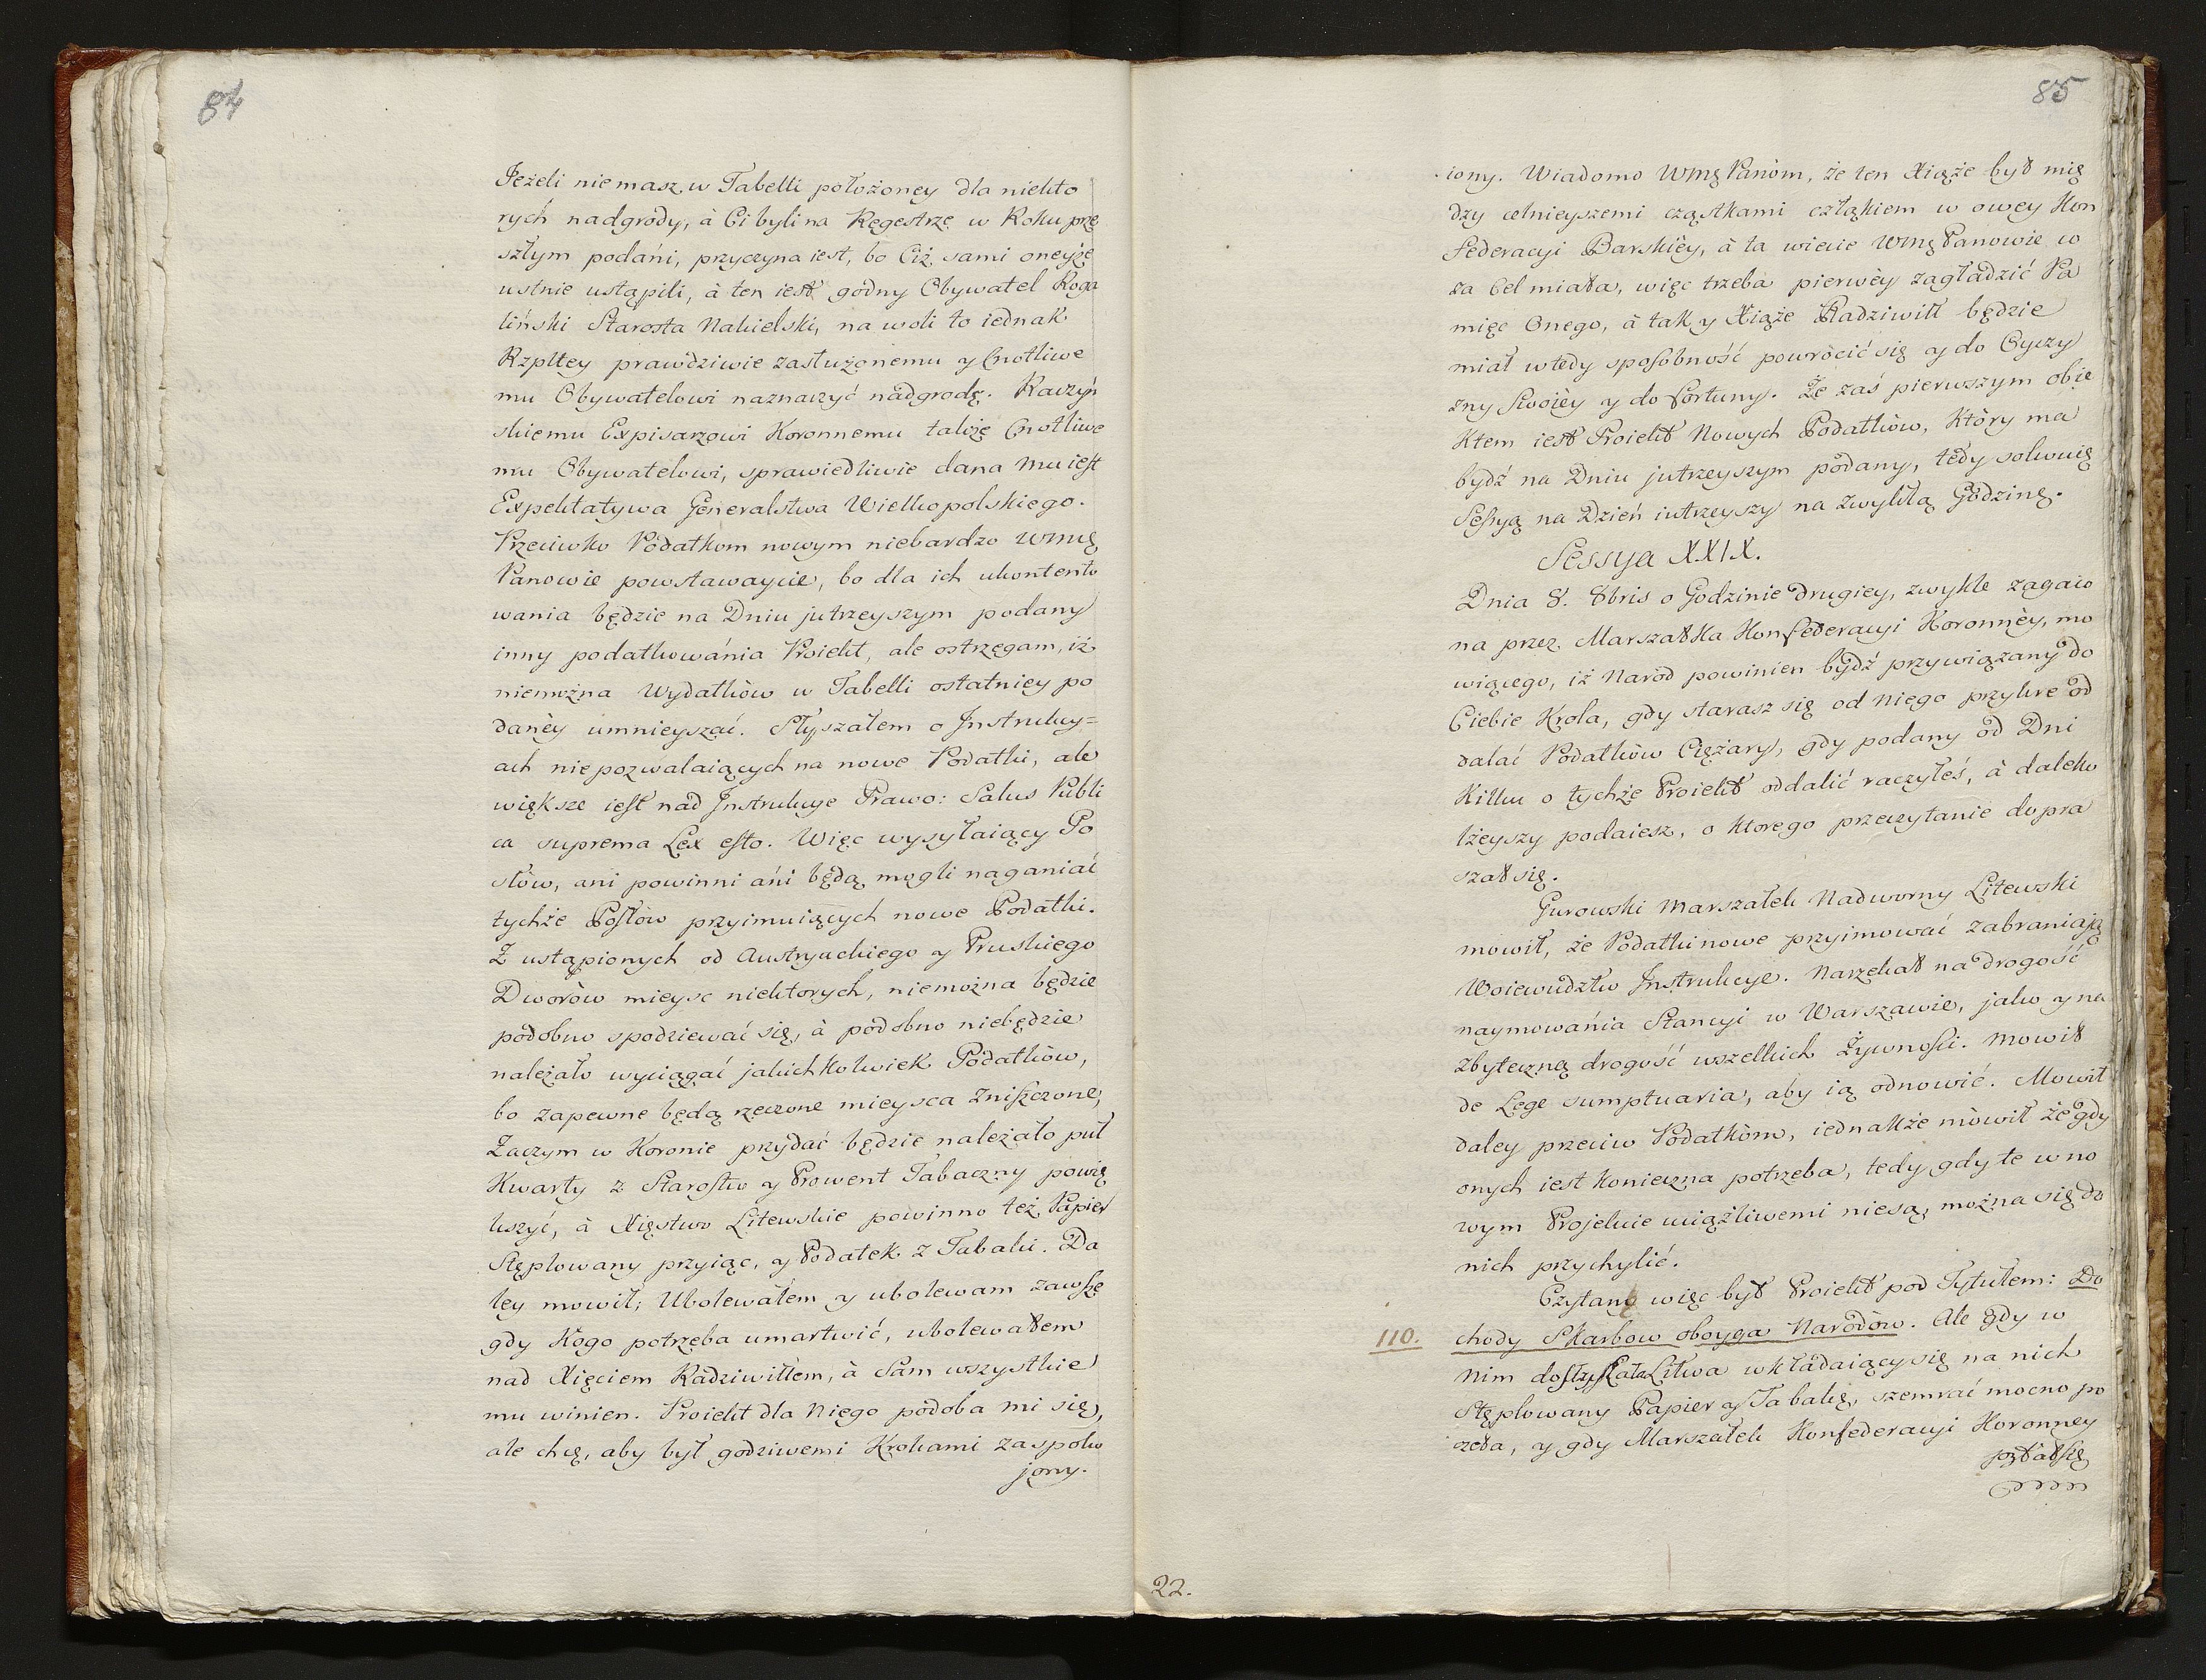 84
Jeżeli niemasz w Tabelli położoney dla niekto
rych nadgrody, à Ci byli na Regestrze w Roku prze
szłym podáni, przyczyna iest, bo Ciż sami oneyże
ustnie ustąpili, à ten iest godny Obywatel Roga
liński Starosta Nakielski, na woli to iednak
Rzpltey prawdziwie zasłużonemu y Cnotliwe
mu Obywatelowi naznaczyć nadgrodę. Raczyń
skiemu Expisarzowi Koronnemu także Cnotliwe
mu Obywatelowi, sprawiedliwie dana mu iest
Expektatywa Generalstwa Wielkopolskiego.
Przeciwko Pódatkom nowym niebardzo WMę
Panowie powstawaycie, bo dla ich ukontento
wania będzie na Dniu jutrzeyszym podany
inny podatkowánia Proiekt, ale ostrzegam, iż
niemożna Wydatków w Tabelli ostatniey po
danèy umnieyszać. Słyszałem o Instrukcy=
ach niepozwalaiących na nowe Pódatki, ale
większe iest nad Instrukcye Prawo: Salus Publi
ca suprema Lex esto. Więc wysyłaiący Po
słów, ani powinni ani będą mogli naganiać
tychże Posłów przyimuiących nowe Podatki.
Z ustąpionych od Austryackiego y Pruskiego
Dworòw mieysc niektorych, niemożna będzie
pódobno spodziewać się, à pódobno niebędzie
należało wyciągać jakichkolwiek Pódatków,
bo zapewne będą rzeczone mieysca zniszczone,
Zaczym w Koronie przydać będzie należało puł
Kwarty z Starostw y Prowent Tabaczny powię
kszyć, à Xięstwo Litewskie powinno też Papier
Stęplowany przyiąc, y Podatek z Tabaki. Da
ley mowił; Ubolewałem y ubolewam zawsze
gdy Kogo potrzeba umartwić, ubolewałem
nad Xięciem Radziwiłłem, à Sam wszystkie
mu winien. Proiekt dla Niego pòdoba mi się,
ale chcę, aby był godziwemi Krokami zaspoko
jony.
85
iony. Wiadomo WMę Panòm, że ten Xiąże był mię
dzy celnieyszemi cząstkami członkiem w owey Kon
federacyi Barskièy, à ta wiecie WMę Panowie co
za Cel miała, więc trzeba pierwèy zagładzić Pa
mięc Onego, à tak y Xiąże Radziwiłł będzie
miał wtedy sposobność powròcić się y do Oyczy
zny Swoièy y do fortuny. Że zaś pierwszym obie
ktem iest Proiekt Nowych Podatków, Który ma
bydź na Dniu jutrzeyszym pódany, tedy solwuię
Sessyą na Dzień iutrzeyszy na zwykłą Godzinę.
Sessya XXIX.
Dnia 8. 8bris o Godzinie drugiey, zwykle zagaio
na przez Marszałka Konfederacyi Koronnèy, mo
wiącego, iż Narod powinien bydź przywiązany do
Ciebie Krola, gdy starasz się od niego przykre od
dalać Podatków Ciężary, gdy podany od Dni
Kilku o tychże Proiekt oddalić raczyłeś, à daleko
lżeyszy podaiesz, o ktorego przeczytanie dopra
szał się.
Gurowski Marszałek Nadworny Litewski
mowił, że Podatki nowe przyimować zabraniają
Woiewudztw Instrukcye. Narzekał na drogość
naymowánia Stancyi w Warszawie, jako y na
zbyteczną drogość wszelkich Żywności. Mowił
de Lege sumptuaria, aby ią odnowić. Mowił
daley przeciw Podatkòm, iednakże mówił że gdy
onych iest konieczna potrzeba, tedy gdy te w no
wym Projekcie uciążliwemi niesą, można się do
nich przychylić.
Czytany więc był Proiekt pod Tytułem: Do
110. chody Skarbow oboyga Narodòw. Ale gdy w
nim dostrzekała Litwa wkładaiący się na nich
Stęplowany Papier y Tabakę, szemrać mocno po
częła, y gdy Marszałek Konfederacyi Koronney
pytał się
22.